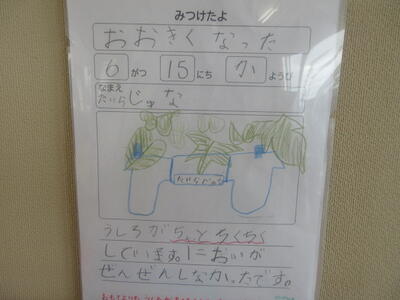 みつけたよ
おおきくなった
6がつ15にちかようび
なまえ
たいらじゅな
たいらじゅな
うしろがちょとちくちく
しています。においが
ぜんぜんしなかったです。